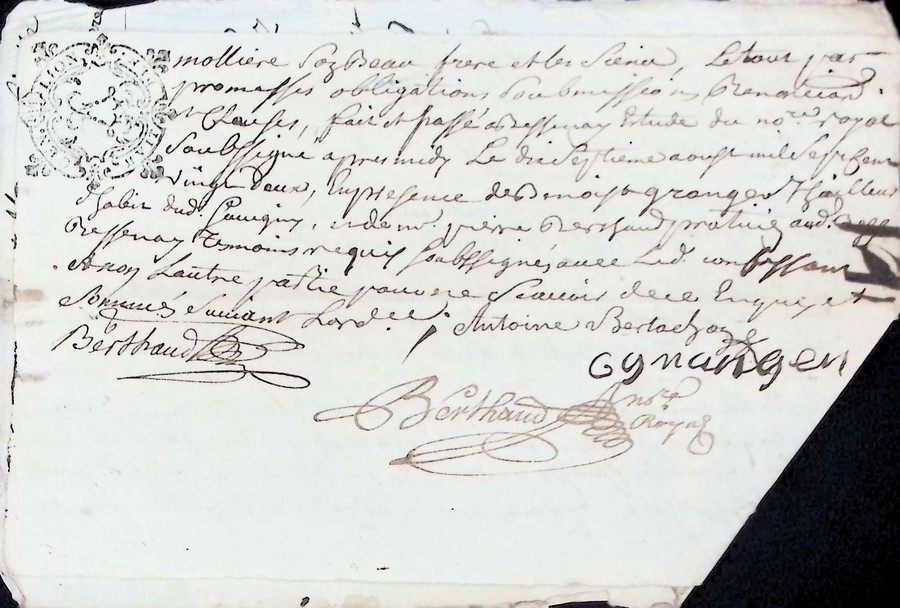 molliere son Beau frere et les siens, Le tout par
promesses obligations soubmissions Renonciaōn
et clauses, fait et passé a Ressenay Estude du no.re royal
soubssigné apres midy Le dix septieme aoust mil sept cent
vingt deux, En presence de Benoist granger tailleur
d'habit dud. et de m.e pierre Berthaud praticien aud.
Ressenay temoins requis soubssignés avec Led. confessant
et non Lautre partie pour ne scavoir de ce Enquis et
sommés suivant Lord.ce / Antoine
Berthaud
G granger
Berthaud no.re
Royal